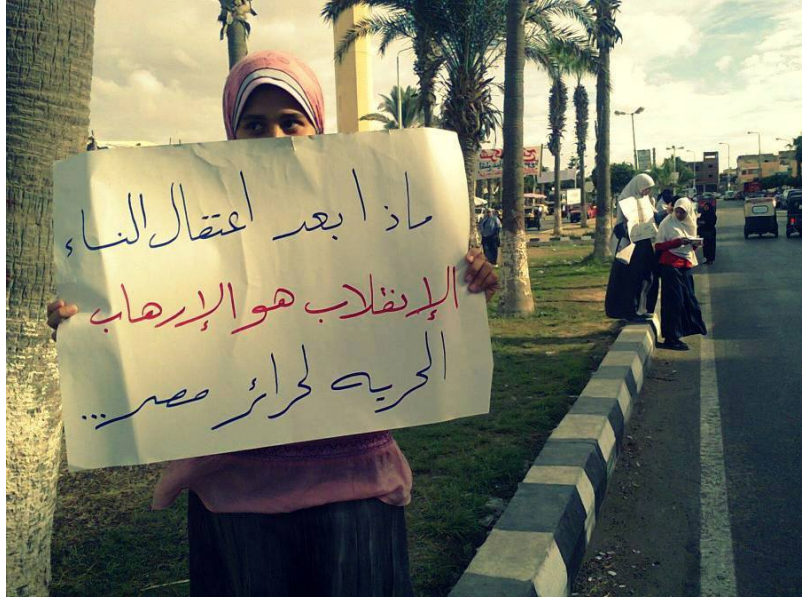 ماذا بعد اعتقال النساء
الإنقلاب هو الإرهاب
الحريه لحرائر مصر...